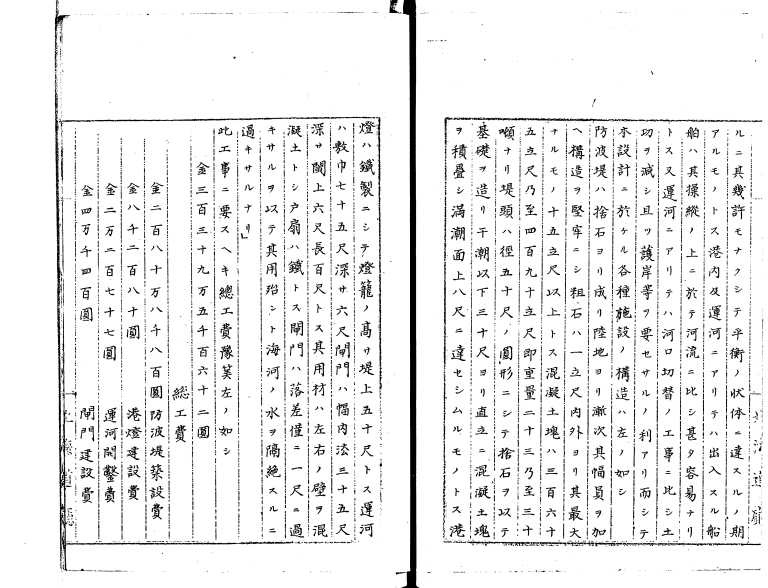 ルニ其幾許モナクシテ平衡ノ状体ニ達スルノ期
アルモノトス港内及運河ニアリテハ出入スル船
舶ハ其操縦ノ上ニ於テ河流ニ比シ甚タ容易ナリ
トス又運河ニアリテハ河口切替ノ工事ニ比シ土
功ヲ減シ且ツ護岸等ヲ要セサルノ利アリ而シテ
本設計ニ於ケル各種施設ノ構造ハ左ノ如シ
防波堤ハ捨石ヨリ成リ陸地ヨリ漸次其幅員ヲ加
ヘ構造ヲ堅牢ニシ粗石ハ一立尺内外ヨリ其最大
ナルモノ十五立尺以上トス混凝土塊ハ三百六十
五立尺乃至四百九十立尺即重量二十三乃至三十
噸ナリ堤頭ハ径五十尺ノ圓形ニシテ捨石ヲ以テ
基礎ヲ造リ干潮以下三十尺ヨリ直立ニ混凝土塊
ヲ積疊シ満潮面上八尺ニ達セシムルモノトス港
燈ハ鐵製ニシテ燈籠ノ髙サ堤上五十尺トス運河
ハ敷巾七十五尺深サ六尺閘門ハ幅内法三十五尺
深サ閾上六尺長百尺トス其用材ハ左右ノ壁ヲ混
凝土トシ戸扇ハ鐵トス閘門ハ落差僅ニ一尺ニ過
キサルヲ以テ其用殆ント海河ノ水ヲ隔絶スルニ
過キサルナリ」
此工事ニ要スヘキ總工費豫算左ノ如シ
金三百三十九万五千百六十二圓
總工費
金二百八十万八千八百圓防波堤築設費
金八千二百八十圓 港燈建設費
金二万二百七十七圓 運河開鑿費
金四万千四百圓 閘門建設費